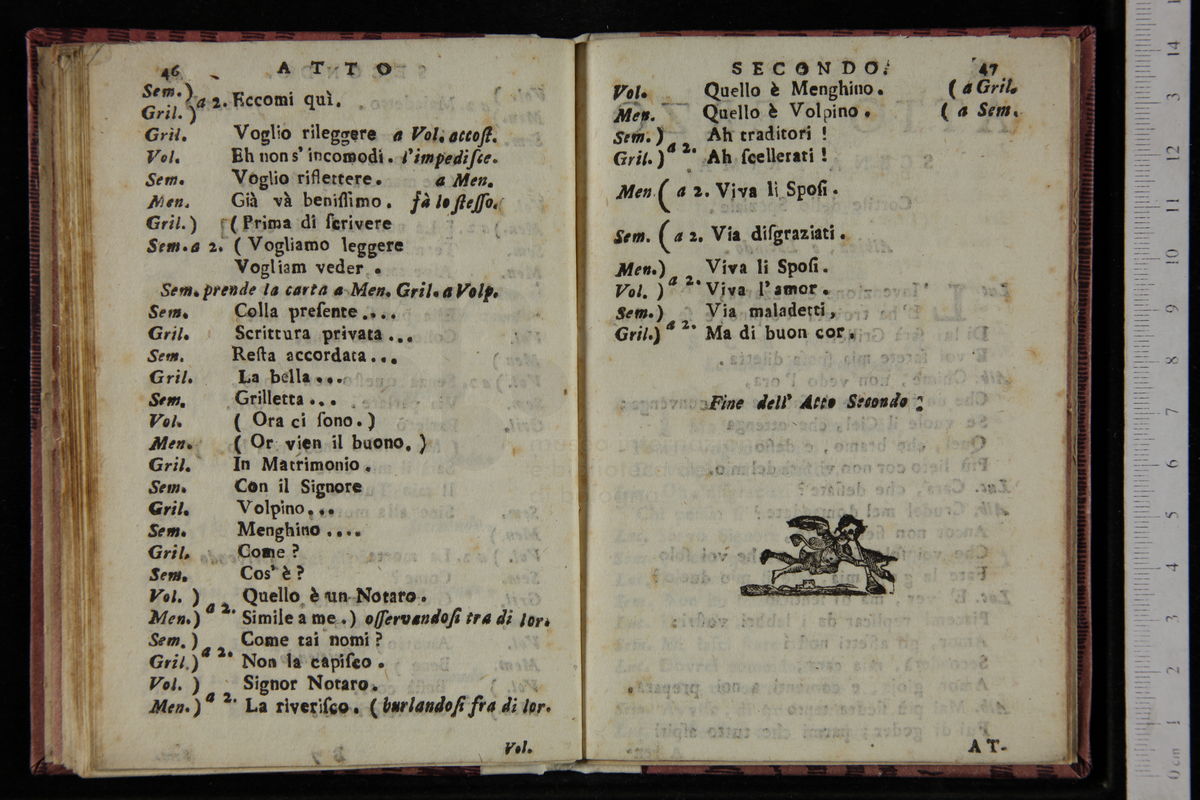 46 ATTO
Sem.)
Gril.) a 2. Eccomi quì.
Gril. Voglio rileggere a Vol. accoſt.
Vol. Eh non s' incomodi. l'impediſce.
Sem. Voglio riflettere. a Men.
Men. Già và beniſſimo. fà lo ſteſſo.
Gril.) (Prima di ſcrivere
Sem. a 2. (Vogliamo leggere
Vogliam veder.
Sem. prende la carta a Men. Gril. a Volp.
Sem. Colla preſente....
Gril. Scrittura privata...
Sem. Reſta accordata...
Gril. La bella...
Sem. Grilletta...
Vol. (Ora ci ſono.)
Men. (Or vien il buono.)
Gril. In Matrimonio.
Sem. Con il Signore
Gril. Volpino...
Sem. Menghino....
Gril. Come?
Sem. Cos' è?
Vol. ) Quello è un Notaro.
Men.) a 2. Simile a me.) oſſervandoſi tra di lor.
Sem. ) Come tai nomi?
Gril.) a 2. Non la capiſco.
Vol. ) Signor Notaro.
Men.) a 2. La riveriſco. (burlandoſi fra di lor.
Vol.
SECONDO. 47
Vol. Quello è Menghino. (a Gril.
Men. Quello è Volpino. (a Sem.
Sem.) Ah traditori!
Gril.) a 2. Ah ſcellerati!
Men. (a 2. Viva li Spoſi.
Sem. (a 2. Via diſgraziati.
Men.) Viva li Spoſi.
Vol. ) a 2. Viva l'amor.
Sem.) Via maladetti,
Gril.) a 2. Ma di buon cor.
Fine dell' Atto Secondo.
AT-